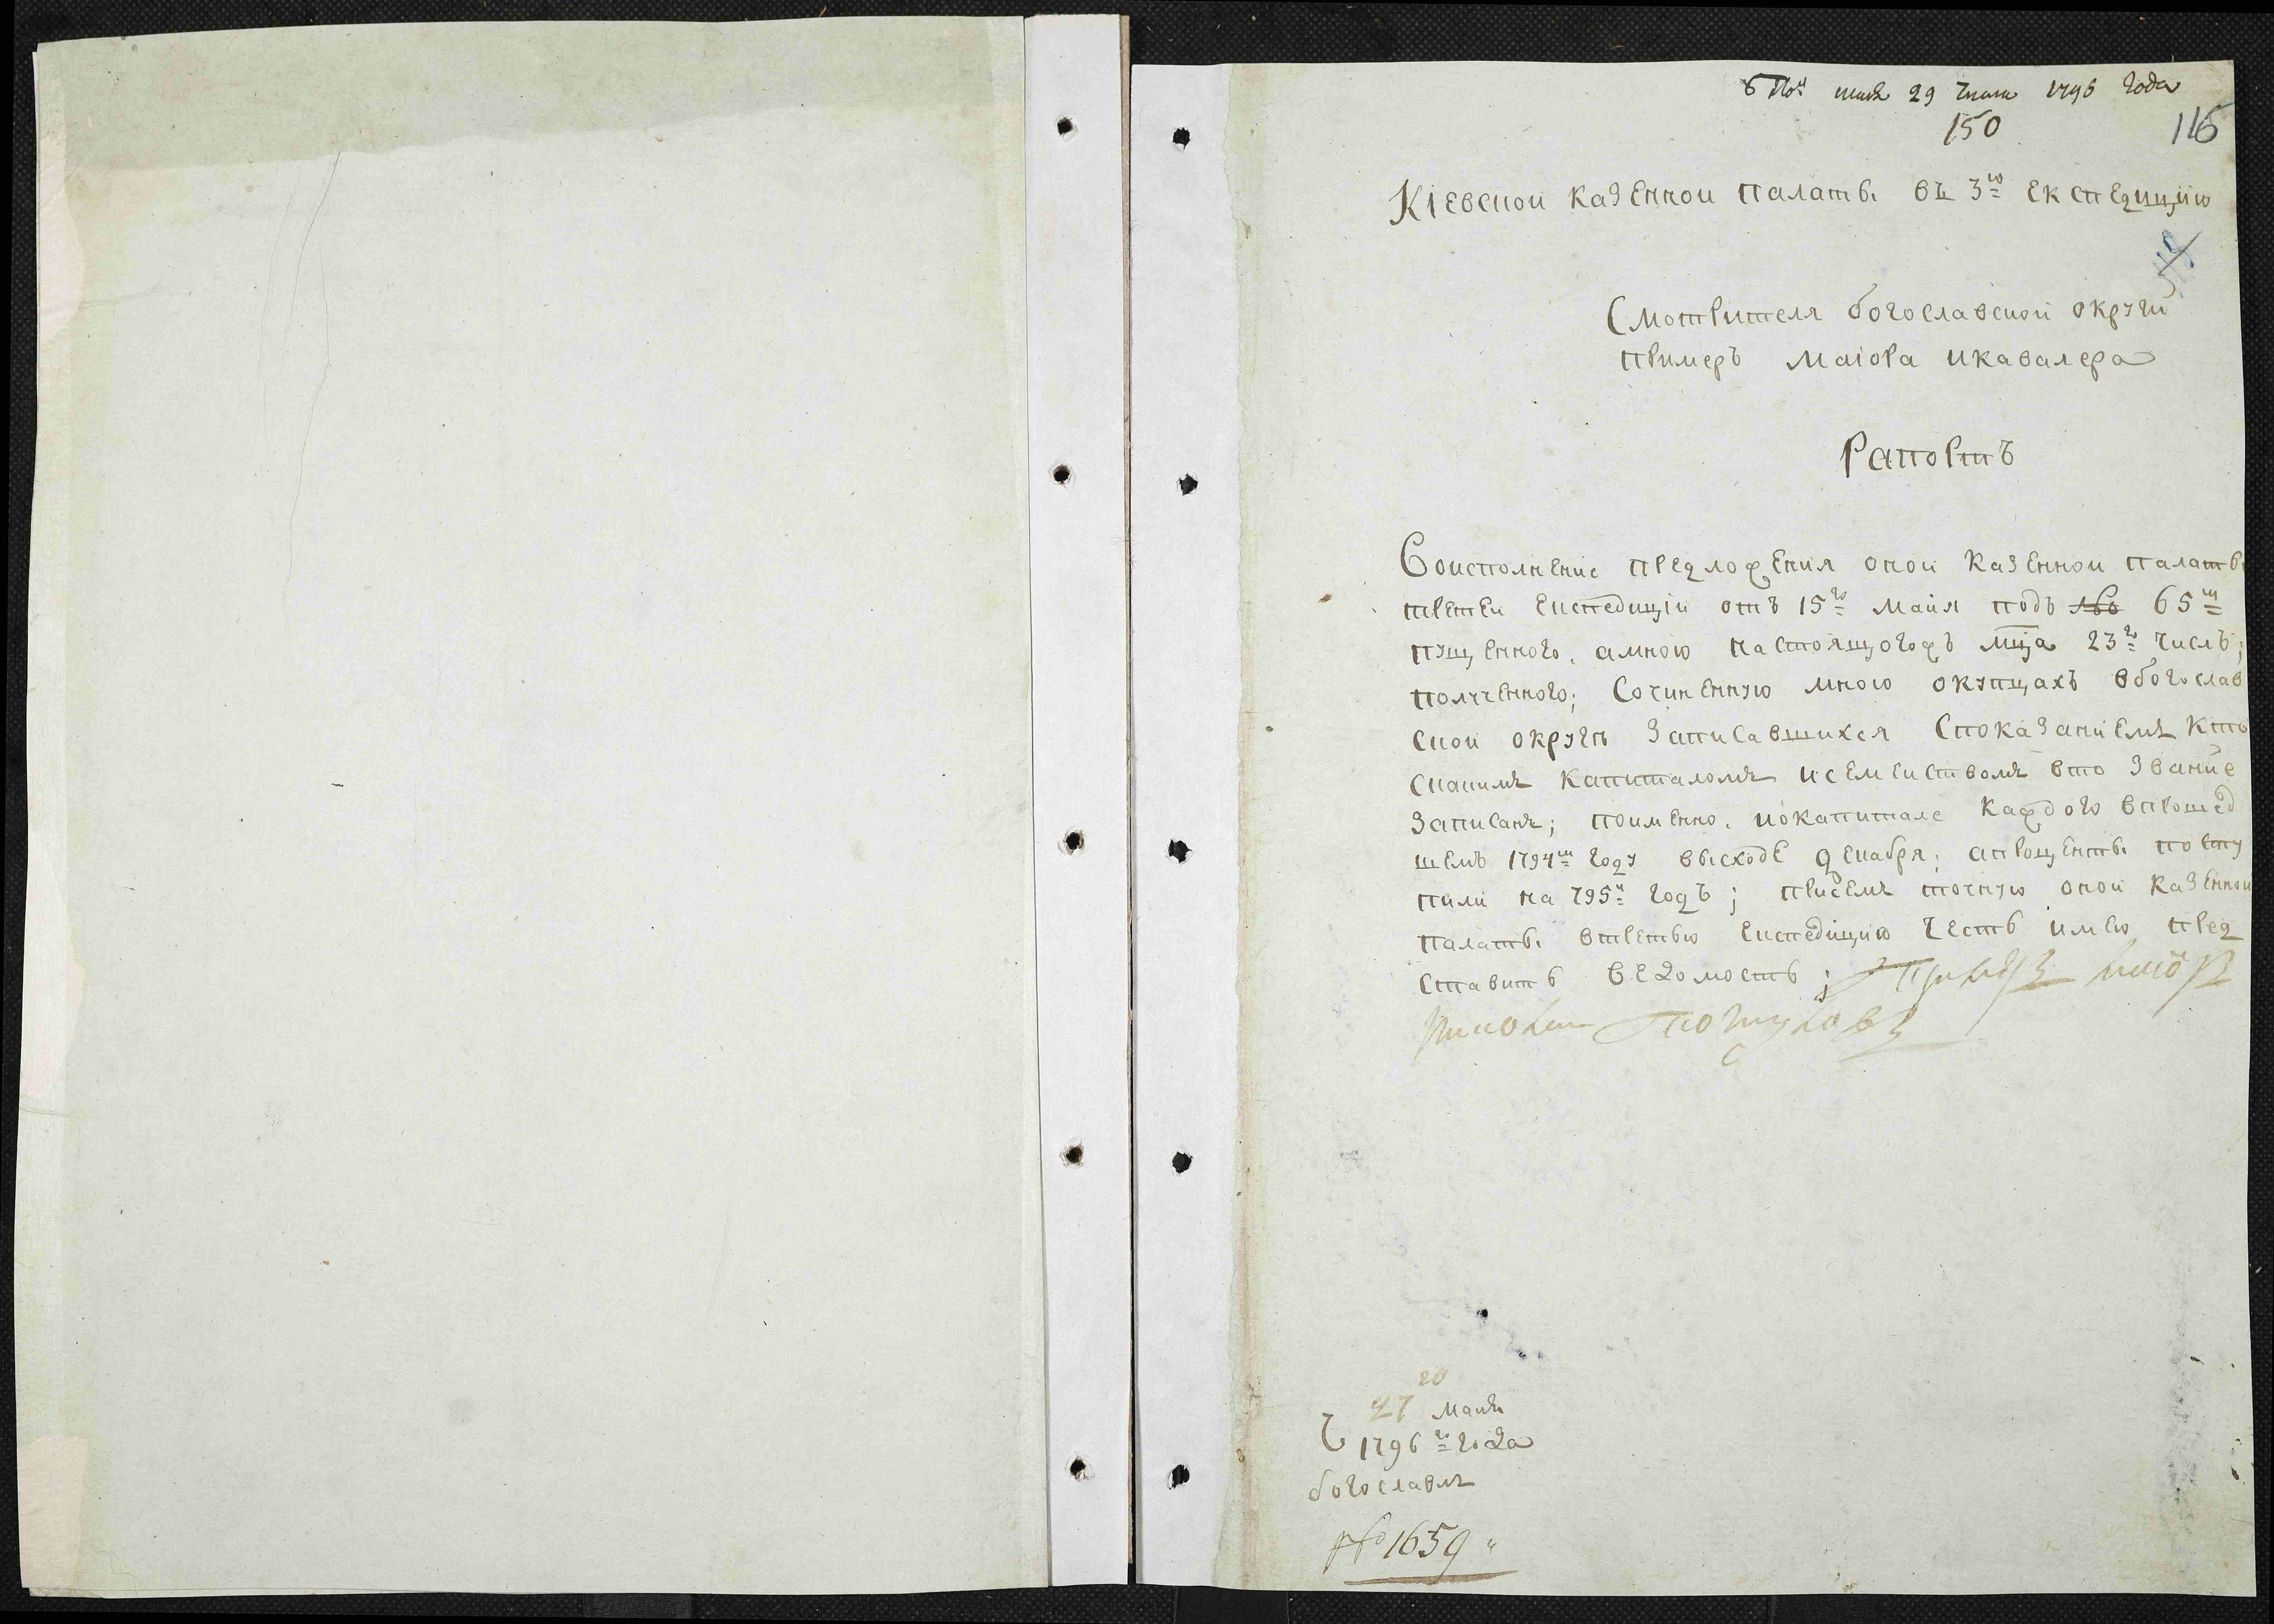 маия 29 числа 1796 года
150
116
Кіевской казенной палаты въ 3ю експедицию
Смотрителя богославской округи
пример маіора икавалера
Рапортъ
Воисполнение предложения оной казенной палаты
третей експедиціи отъ 15го майя подъ № 65м
пущенного, амною настоящогожъ мца 23го числъ;
полученного; Сочиненную мною окупцахъ вбогослав
скои округи записавшихся Спокaзаниемъ кто
скакимъ капиталомъ исемеиством вто звание
записанъ; поименно, иокапитале каждого впрошед
шемъ 1794м году висходе декабря; апроценты посту
пили на 795й годъ; присемъ точную оной казенной
палаты втретью експедицию честь имею пред
ставить ведомость; Примеръ маіоръ
27 маия
Ч 1796го года
богославль
№ 1659